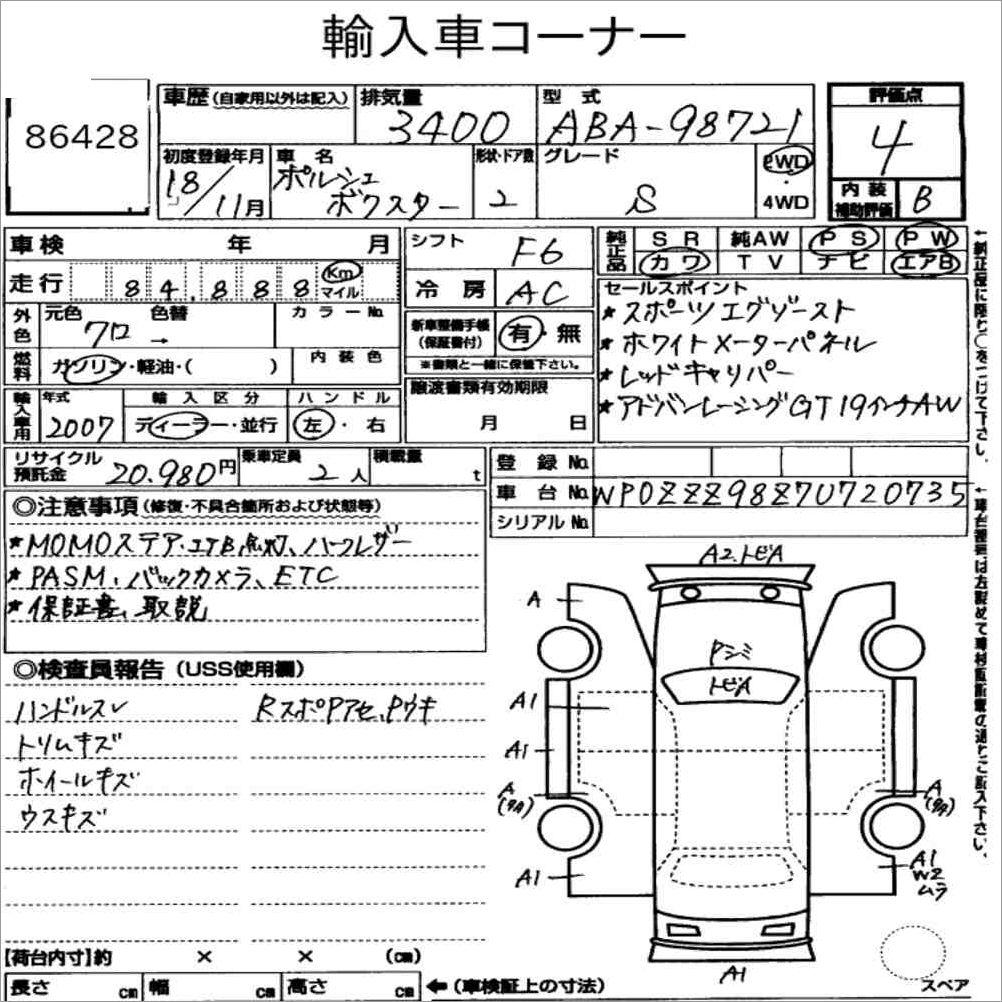 輸入車コーナー
86428
車歴 (自家用以外は記入) 排気量 型式 評価点
3400 ABA-98721 4
初度登録年月 車名 形状・ドア数 グレード 2WD・4WD
18/11月 ポルシェ ボクスター 2 S
内装補助評価 B
車検 年 月
シフト F6
純正品 SR 純AW PS PW
カワ TV ナビ エアB
走行 84,888 Km マイル
冷房 AC
セールスポイント
外色 元色 クロ 色替 → カラーNo.
新車整備手帳(保証書付) 有・無
※書類と一緒に保管下さい。
★スポーツエグゾースト
★ホワイトメーターパネル
★レッドキャリパー
★アドバンレーシングGT19インチAW
燃料 ガソリン・軽油・( ) 内装色
譲渡書類有効期限
月 日
輸入車用 年式 輸入区分 ハンドル
2007 ディーラー・並行 左・右
リサイクル預託金 20.980円 乗車定員 2人 積載量 t
登録No.
車台No. WP0ZZZ98Z7U720735
シリアルNo.
◎注意事項 (修復・不具合箇所および状態等)
★MOMOステア.エアB点灯、ハーフレザー
★PASM、バックカメラ、ETC
★保証書、取説
◎検査員報告 (USS使用欄)
ハンドルスレ RスポPアセ、Pウキ
トリムキズ
ホイールキズ
ウスキズ
A2.トビA
A
Pシミ
トビA
A1
A1
A
A
A1
A1
W2
ムラ
A1
スペア
【荷台内寸】約 × × (cm)
長さ cm 幅 cm 高さ cm ←(車検証上の寸法)
↑純正品に限り○をつけて下さい。